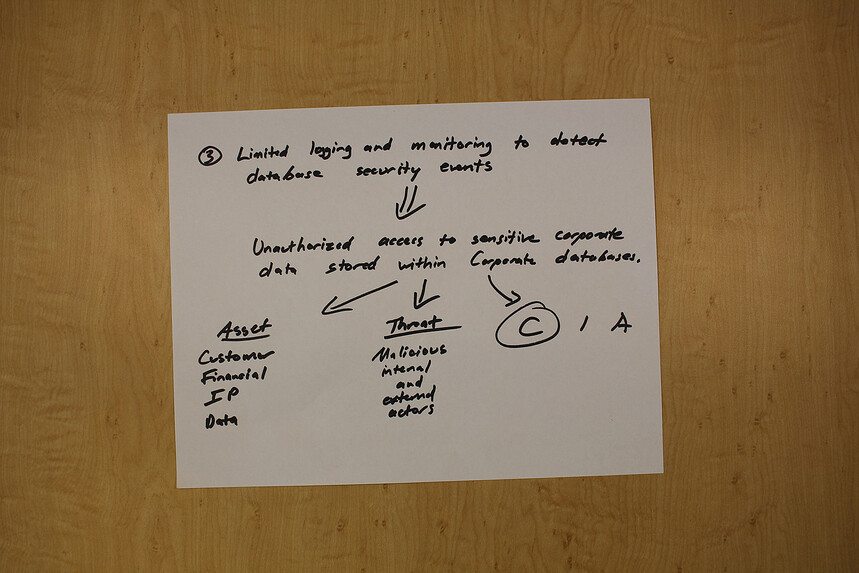 ③ Limited logging and monitoring to detect
database security events
Unauthorized access to sensitive corporate
data stored within Corporate databases.
Asset
Customer
Financial
IP
Data
Threat
Malicious
internal
and
external
actors
C I A